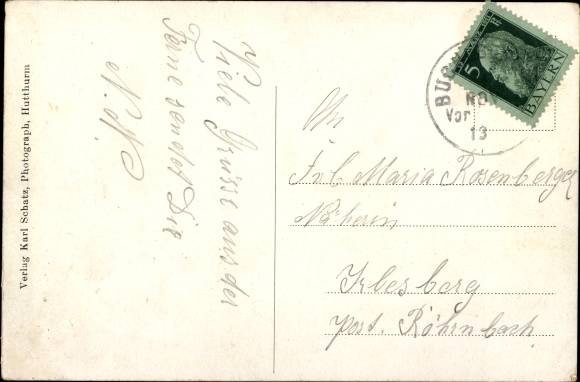 Verlag Karl Schatz, Photograph, Hutthurm
Viele Grüsse aus der
Ferne sendet Dir
N. N.
5 Pf
BAYERN
BU
NOV
Vor
13
An
Frl. Maria Rosenberger
Näherin
Irlesberg
Post. Röhrnbach